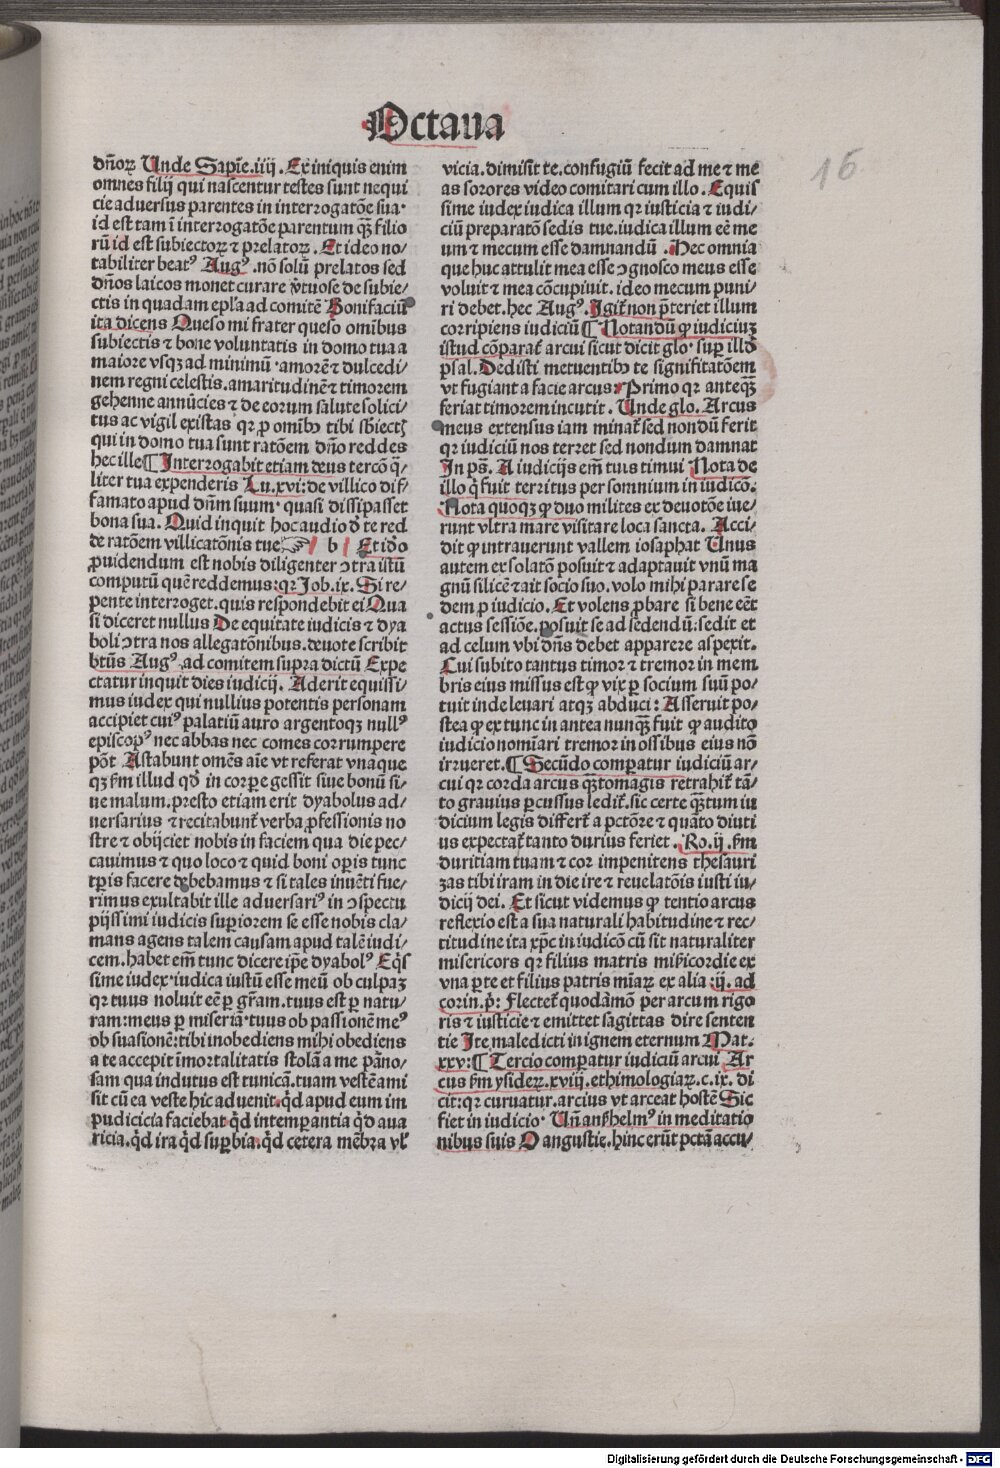 Octaua
16
dñoꝝ Unde Sapiẽ.iiij. Ex iniquis enim
omnes filij qui nascentur testes sunt nequi
cie aduersus parentes in interrogatõe sua·
id est tam ĩ interrogatõe parentum qꝫ̃ filio
rũ id est subiectoꝝ ⁊ prelatoꝝ. Et ideo no/
tabiliter beatꝰ Augꝰ. nõ solũ prelatos sed
dños laicos monet curare v̓tuose de subie/
ctis in quadam epl̃a ad comitẽ Bonifaciũ
ita dicens Queso mi frater queso omĩbus
subiectis ⁊ bone voluntatis in domo tua a
maiore vsqꝫ ad minimũ·amorẽ ⁊ dulcedi/
nem regni celestis.amaritudinẽ ⁊ timorem
gehenne annũcies ⁊ de eorum salute solici/
tus ac vigil existas qꝛ ꝓ omĩbꝰ tibi sb̓iectꝭ
qui in domo tua sunt ratõem dño reddes
hec ille ¶ Interrogabit etiam deus tercõ q̃/
liter tua expenderis Lu.xvi: de villico dif/
famato apud dñm suum·quasi dissipasset
bona sua. Quid inquit hoc audio d̓ te red
de ratõem villicatõnis tue ☞ b Et iḋo
ꝓuidendum est nobis diligenter ↄtra istũ
computũ quẽ reddemus: qꝛ Job.ix. Si re/
pente interroget.quis respondebit ei Qua
si diceret nullus De equitate iudicis ⁊ dya
boli ↄtra nos allegatõnibus.deuote scribit
btũs Augꝰ.ad comitem supra dictũ Expe
ctatur inquit dies iudicij. Aderit equissi/
mus iudex qui nullius potentis personam
accipiet cuiꝰ palatiũ auro argentoqꝫ nullꝰ
episcopꝰ nec abbas nec comes corrumpere
põt Astabunt omẽs aĩe vt referat vnaque
qꝫ ẜm illud qḋ in corꝑe gessit siue bonũ si/
ue malum.presto etiam erit dyabolus ad/
uersarius ⁊ recitabunt̃ verba ꝓfessionis no
stre ⁊ obijciet nobis in faciem qua die pec/
cauimus ⁊ quo loco ⁊ quid boni oꝑis tunc
tp̃ris facere debebamus ⁊ si tales inuẽti fue/
rimus exultabit ille aduersariꝰ in ↄspectu
pijssimi iudicis suꝑiorem se esse nobis cla/
mans agens talem causam apud talẽ iudi/
cem.habet em̃ tunc dicere ip̃e dyabolꝰ Eq̃s
sime iudex·iudica iustũ esse meũ ob culpaꝫ
qꝛ tuus noluit eẽ ꝑ gr̃am.tuus est ꝑ natu/
ram:meus ꝑ miseriã·tuus ob passionẽ meꝰ
ob suasionẽ:tibi inobediens mihi obediens
a te accepit ĩmortalitatis stolã a me pãno/
sam qua indutus est tunicã.tuam vestẽ ami
sit cũ ea veste hic aduenit.qḋ apud eum im
pudicicia faciebat qḋ intemꝑantia qḋ aua
ricia.qḋ ira qḋ suꝑbia.qḋ cetera mẽbra vl̓
vicia.dimisit te.confugiũ fecit ad me ⁊ me
as sorores video comitari cum illo. Equis
sime iudex iudica illum qꝛ iusticia ⁊ iudi/
ciũ preparatõ sedis tue.iudica illum eẽ me
um ⁊ mecum esse damnandũ. Hec omnia
que huc attulit mea esse ↄgnosco meus esse
voluit ⁊ mea cõcupiuit.ideo mecum puni/
ri debet.hec Augꝰ. Igit̃ non p̃teriet illum
corripiens iudiciũ ¶ Notandũ ꝙ iudiciuꝫ
istud cõparat̃ arcui sicut dicit glo·suꝑ illḋ
psal. Dedisti metuentibꝰ te signifitatõem
vt fugiant a facie arcus: Primo qꝛ anteqꝫ̃
feriat timorem incutit. Unde glo. Arcus
meus extensus iam minat̃ sed nondũ ferit
qꝛ iudiciũ nos terret sed nondum damnat
In ps̃. A iudicijs em̃ tuis timui Nota de
illo q̓ fuit territus per somnium in iudicõ.
Nota quoqꝫ ꝙ duo milites ex deuotõe iue/
runt vltra mare visitare loca sancta. Acci/
dit ꝙ intrauerunt vallem iosaphat Unus
autem ex solatõ posuit ⁊ adaptauit vnũ ma
gnũ silicẽ ⁊ ait socio suo.volo mihi parare se
dem ꝑ iudicio. Et volens ꝓbare si bene eẽt
actus sessiõe.posuit se ad sedendũ:sedit et
ad celum vbi dñs debet apparere aspexit.
Cui subito tantus timor ⁊ tremor in mem
bris eius missus est ꝙ vix ꝑ socium suũ po/
tuit inde leuari atqꝫ abduci: Asseruit po/
stea ꝙ ex tunc in antea nunqꝫ̃ fuit ꝙ audito
iudicio nomĩari tremor in ossibus eius nõ
irrueret. ¶ Secũdo comꝑatur iudiciũ ar/
cui qꝛ corda arcus qꝫ̃tomagis retrahit̃ tã/
to grauius ꝑcussus ledit̃.sic certe qꝫ̃tum iu
dicium legis differt̃ a pctõre ⁊ quãto diuti
us expectat̃ tanto durius feriet. Ro.ij. ẜm
duritiam tuam ⁊ cor impenitens thesauri
zas tibi iram in die ire ⁊ reuelatõis iusti iu/
dicij dei. Et sicut videmus ꝙ tentio arcus
reflexio est a sua naturali habitudine ⁊ rec/
titudine ita xp̃c in iudicõ cũ sit naturaliter
misericors qꝛ filius matris mĩs̃icordie ex
vna ꝑte et filius patris mĩaꝝ ex alia :ij. ad
corin.p̃: Flectet̃ quodãmõ per arcum rigo
ris ⁊ iusticie ⁊ emittet sagittas dire senten
tie Ite maledicti in ignem eternum Mat.
xxv: ¶ Tercio comꝑatur iudiciũ arcui Ar
cus ẜm ysideꝝ.xviij.ethimologiaꝝ.c.ix. di
cit:qꝛ curuatur.arcius vt arceat hostẽ Sic
fiet in iudicio· Uñ anẜhelmꝰ in meditatio
nibus suis O angustie.hinc erũt pctã accu/
Digitalisierung gefördert durch die Deutsche Forschungsgemeinschaft - DFG